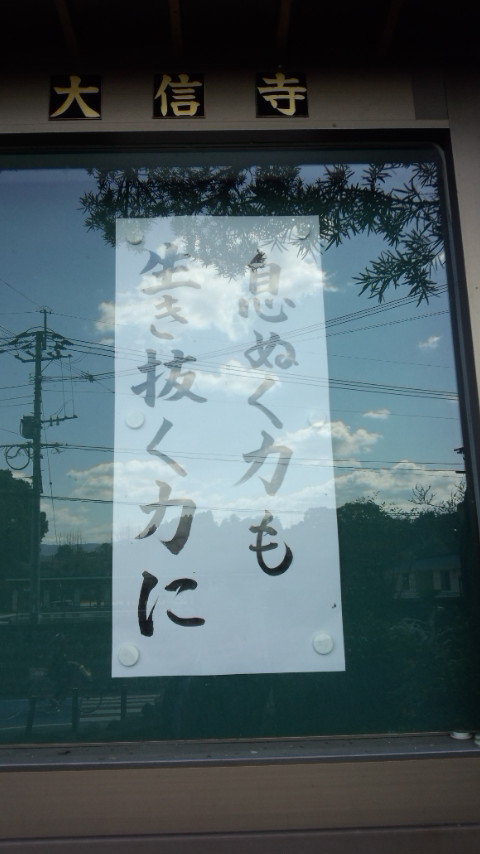 大信寺
息ぬく力も
生き抜く力に